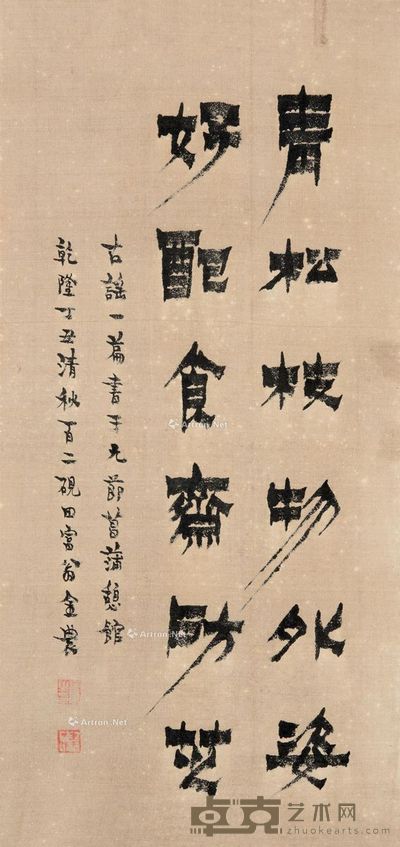 青松枝物外姿
好配食齋房芝
古謠一篇書于九節菖蒲憩館
乾隆丁丑清秋百二硯田富翁金農
Artron.Net
Artron.Net
Artron.Net
卓克艺术网
zhuokearts.com